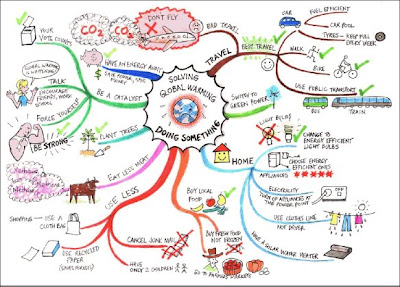 SOLVING
GLOBAL WARMING
DOING SOMETHING
DON'T FLY
CO2
CO2
BAD TRAVEL
TRAVEL
BEST TRAVEL
CAR
FUEL EFFICIENT
CAR POOL
TYRES - KEEP FULL
EVERY WEEK
WALK
BIKE
USE PUBLIC TRANSPORT
BUS
TRAIN
SWITCH TO
GREEN POWER
HOME
LIGHT BULBS
CHANGE TO
ENERGY EFFICIENT
LIGHT BULBS
CHOOSE ENERGY
EFFICIENT ONES
APPLIANCES
ELECTRICITY
TURN OFF APPLIANCES AT
THE POWER POINT
OFF
USE CLOTHES LINE
NOT DRYER
HAVE A SOLAR WATER HEATER
BUY LOCAL
FOOD
BUY FRESH FOOD
NOT FROZEN
GO TO FARMERS MARKETS
USE LESS
CANCEL JUNK MAIL
HAVE
ONLY 2 CHILDREN
SHOPPING - USE A
CLOTH BAG
USE RECYCLED
PAPER
EAT LESS MEAT
Methane
PLANT TREES
BE A CATALYST
YOUR
VOTE COUNTS
TALK
GLOBAL WARMING
IS HAPPENING
ENCOURAGE
FRIENDS, WORK,
SCHOOL
FORCE YOURSELF
BE STRONG
HAVE AN ENERGY AUDIT
SAVE POWER, SAVE
MONEY